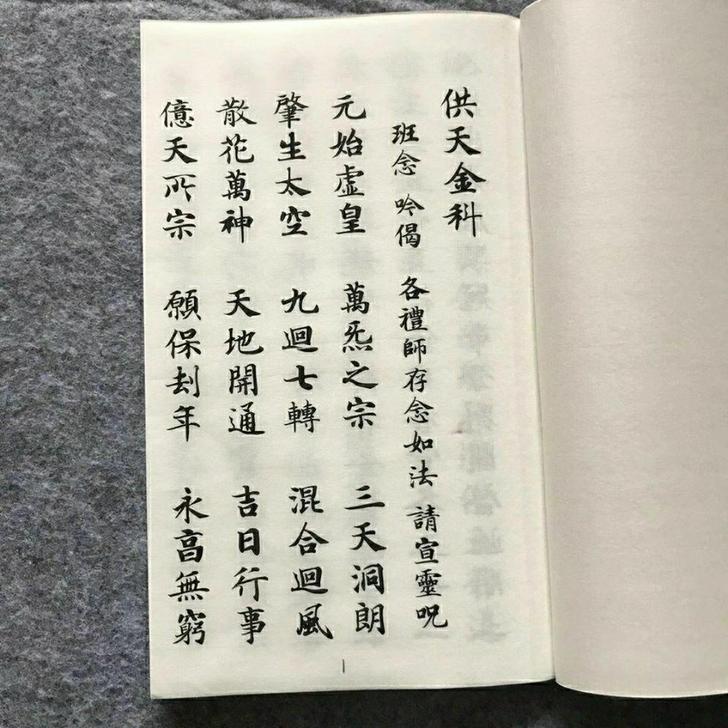 供天金科
班念 吟偈 各禮師存念如法 請宣靈呪
元始虛皇 萬炁之宗 三天洞朗
肇生太空 九迴七轉 混合迴風
散花萬神 天地開通 吉日行事
億天所宗 願保劫年 永亯無窮